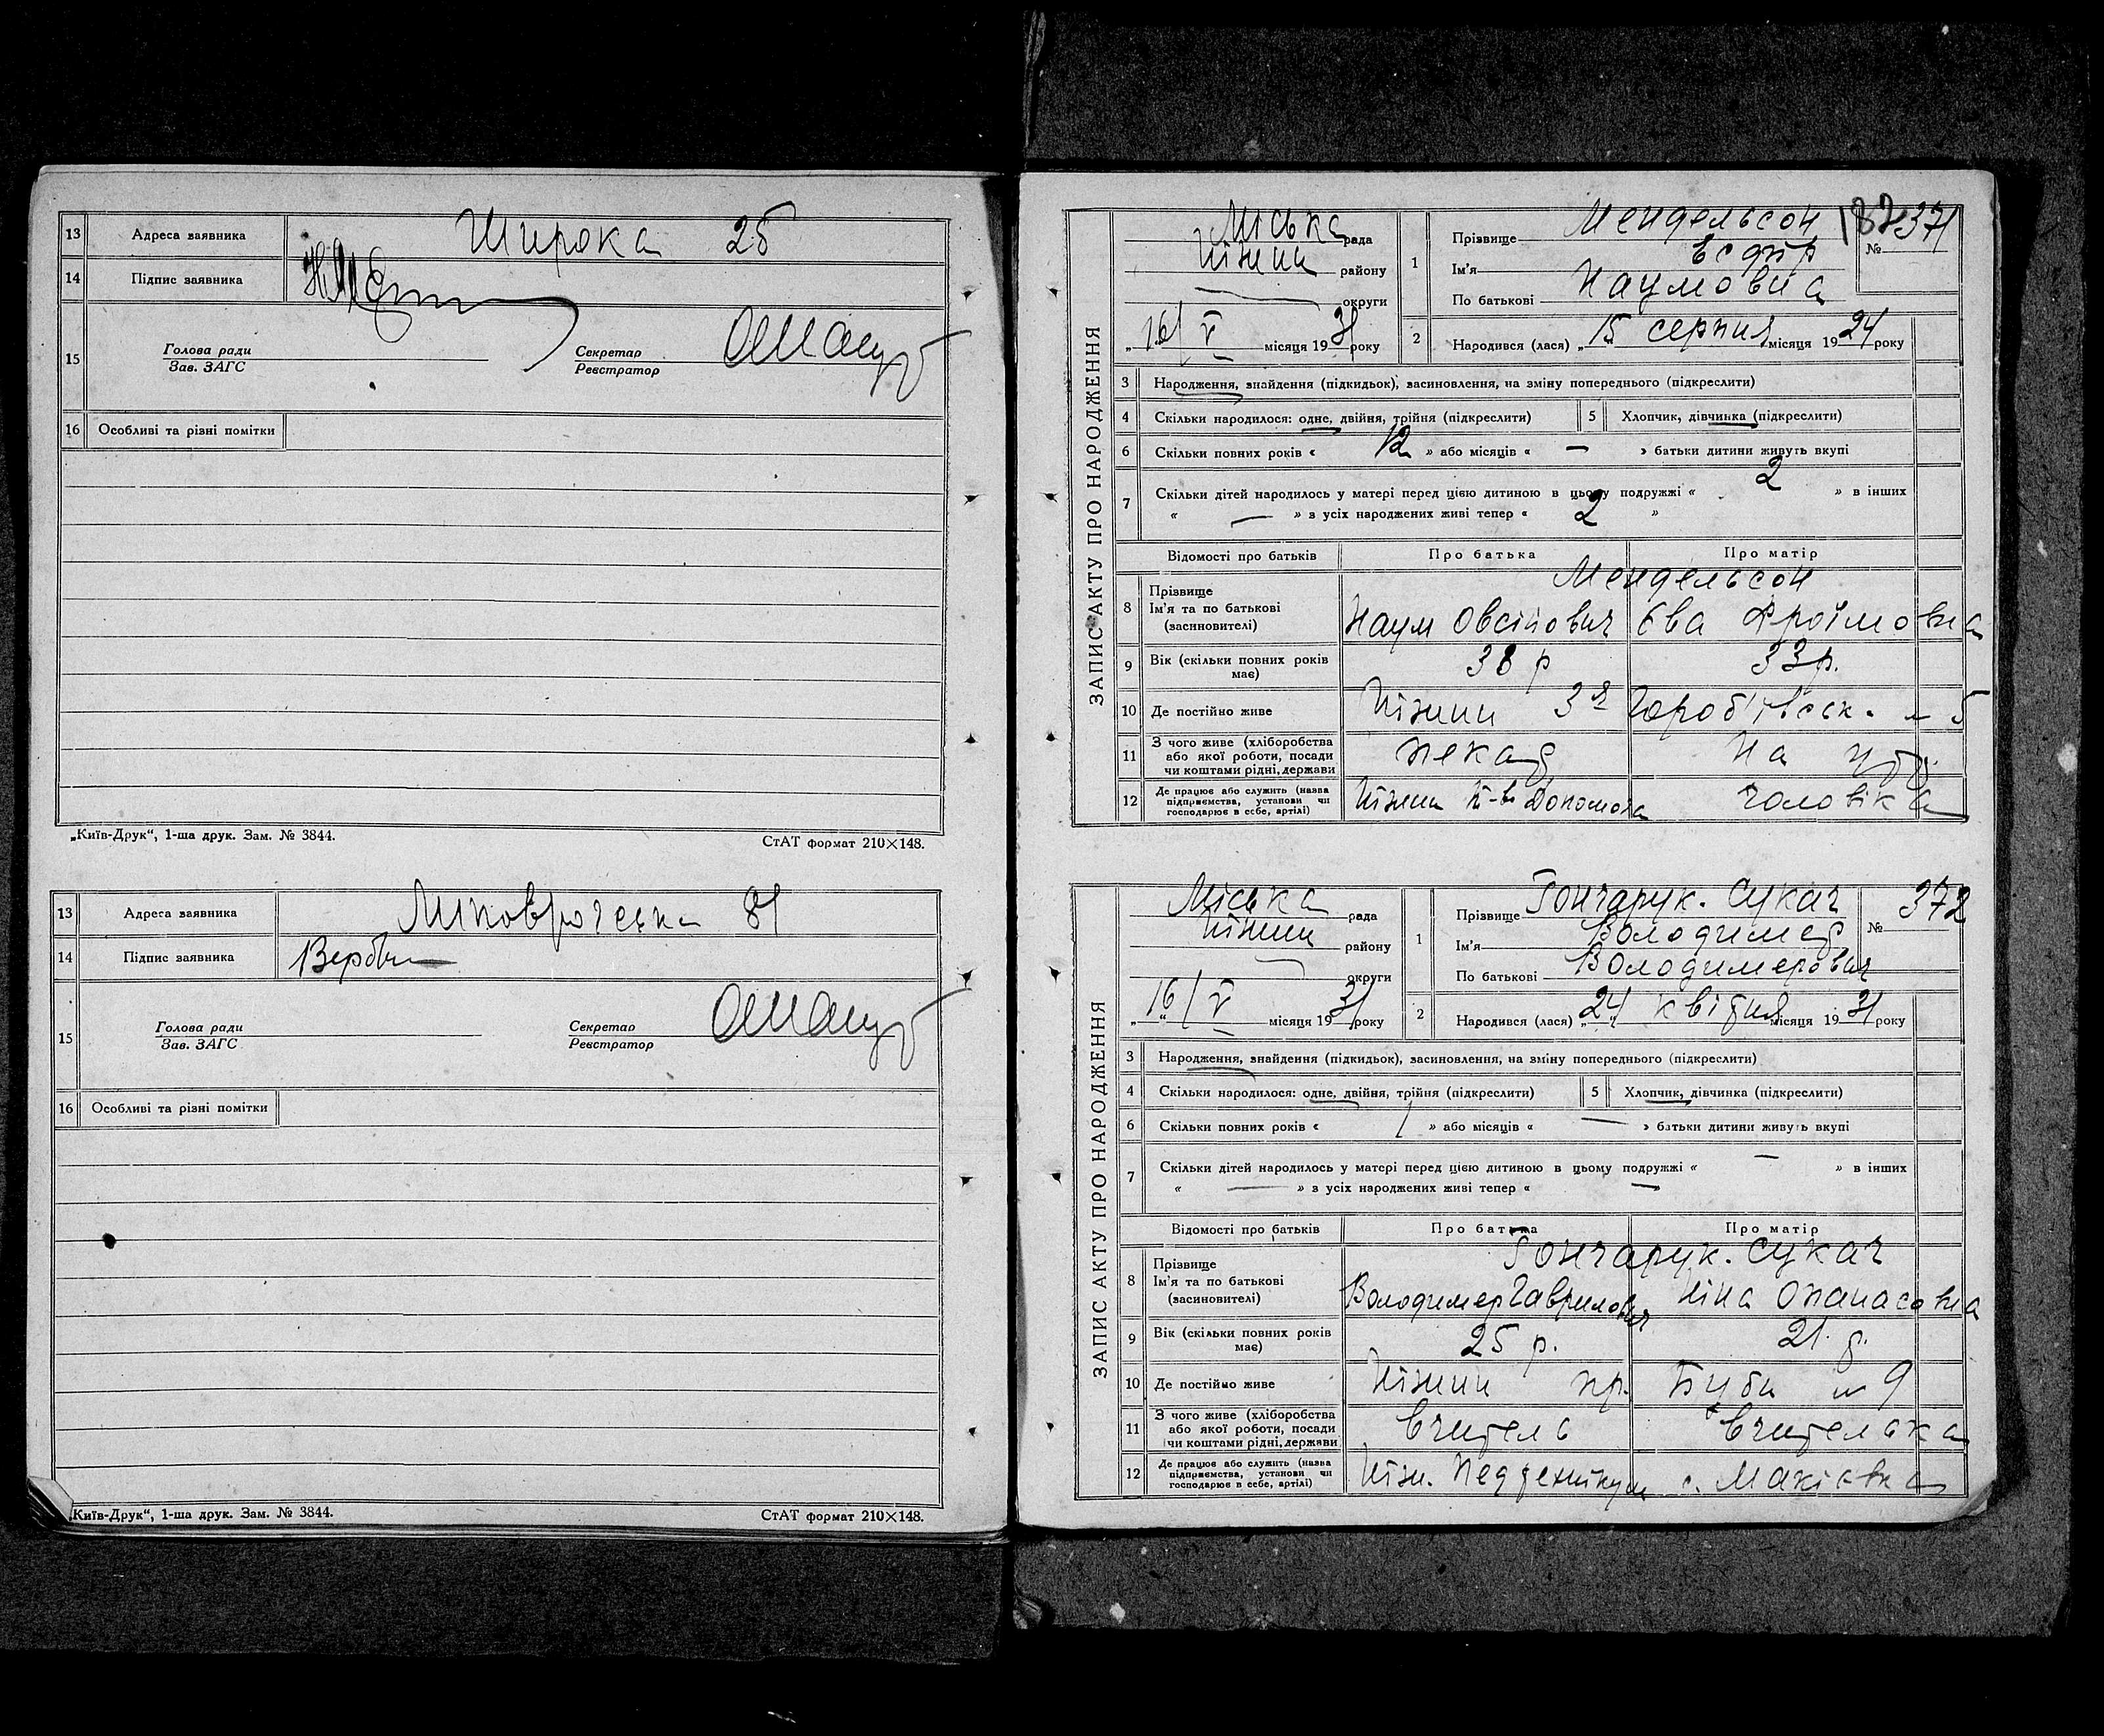 13 Адреса заявника Широка 25
14 Підпис заявника
15 Голова ради Зав. ЗАГС Секретар Реєстратор
16 Особливі та різні помітки
„Київ-Друк“, 1-ша друк. Зам. № 3844. СтАТ формат 210×148.
13 Адреса заявника 81
14 Підпис заявника
15 Голова ради Зав. ЗАГС Секретар Реєстратор
16 Особливі та різні помітки
„Київ-Друк“, 1-ша друк. Зам. № 3844. СтАТ формат 210×148.
ЗАПИС АКТУ ПРО НАРОДЖЕННЯ
Міська рада
Ніжин району
округи
„16/V місяця 1931 року
1 Прізвище Мендельсон
Ім'я Есфір
По батькові Наумовна
187
№ 371
2 Народився (лася) „15 серпня місяця 1924 року
3 Народження, знайдення (підкидьок), засиновлення, на зміну попереднього (підкреслити)
4 Скільки народилося: одне, двійня, трійня (підкреслити) 5 Хлопчик, дівчинка (підкреслити)
6 Скільки повних років « 12 » або місяців « — » батьки дитини живуть вкупі
7 Скільки дітей народилось у матері перед цією дитиною в цьому подружжі « 2 » в інших
« — » з усіх народжених живі тепер « 2 »
Відомості про батьків Про батька Про матір
8 Прізвище Ім'я та по батькові (засиновителі) Мендельсон
Наум Овсійович Єва Фроїмовна
9 Вік (скільки повних років має) 38 р 33 р.
10 Де постійно живе Ніжин 3я Гороб'івськ. 5
11 З чого живе (хліборобства або якої роботи, посади чи коштами рідні, держави пекар на утр.
12 Де працює або служить (назва підприємства, установи чи господарює в себе, артілі) Ніжин Допомога чоловіка
ЗАПИС АКТУ ПРО НАРОДЖЕННЯ
Міська рада
Ніжин району
округи
„16/V місяця 1931 року
1 Прізвище Гончарук. Сукач
Ім'я Володимер
По батькові Володимерович
№ 372
2 Народився (лася) „24 квітня місяця 1931 року
3 Народження, знайдення (підкидьок), засиновлення, на зміну попереднього (підкреслити)
4 Скільки народилося: одне, двійня, трійня (підкреслити) 5 Хлопчик, дівчинка (підкреслити)
6 Скільки повних років « 1 » або місяців « — » батьки дитини живуть вкупі
7 Скільки дітей народилось у матері перед цією дитиною в цьому подружжі « — » в інших
« — » з усіх народжених живі тепер « — »
Відомості про батьків Про батька Про матір
8 Прізвище Ім'я та по батькові (засиновителі) Гончарук. Сукач
Володимер Гаврилович Ніна Опанасовна
9 Вік (скільки повних років має) 25 р. 21 р.
10 Де постійно живе Ніжин пр. Буби 9
11 З чого живе (хліборобства або якої роботи, посади чи коштами рідні, держави вчитель вчителька
12 Де працює або служить (назва підприємства, установи чи господарює в себе, артілі) Ніж. Педтехнікум с. Макіївка